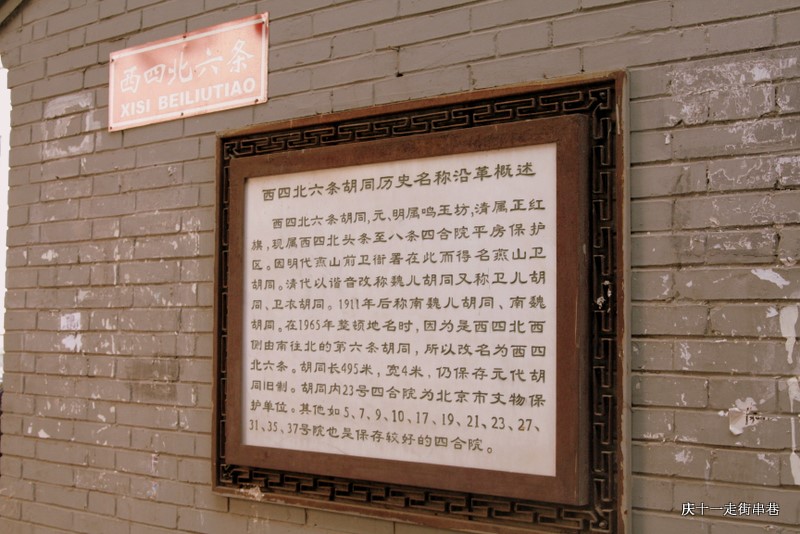 西四北六条
XISI BEILIUTIAO
西四北六条胡同历史名称沿革概述
西四北六条胡同,元、明属鸣玉坊,清属正红
旗,现属西四北头条至八条四合院平房保护
区。因明代燕山前卫衙署在此而得名燕山卫
胡同。清代以谐音改称魏儿胡同又称卫儿胡
同、卫衣胡同。1911年后称南魏儿胡同、南魏
胡同。在1965年整顿地名时,因为是西四北西
侧由南往北的第六条胡同,所以改名为西四
北六条。胡同长495米,宽4米,仍保存元代胡
同旧制。胡同内23号四合院为北京市文物保
护单位。其他如5、7、9、10、17、19、21、23、27、
31、35、37号院也是保存较好的四合院。
庆十一走街串巷